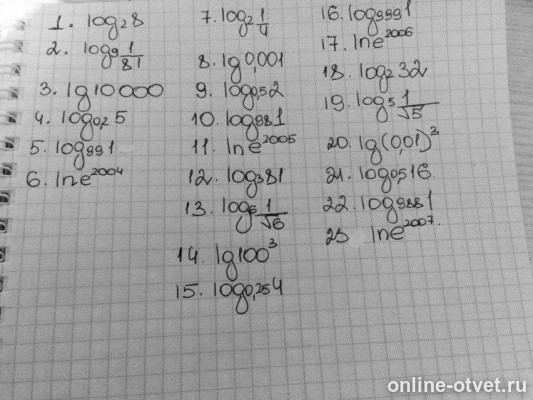 1. log₂8
2. log₉ 1/81
3. lg10000
4. log₀,₂5
5. log₉₉1
6. lne²⁰⁰⁴
7. log₂ 1/4
8. lg0,001
9. log₀,₅2
10. log₉₈1
11. lne²⁰⁰⁵
12. log₃81
13. log₆ 1/√6
14. lg100³
15. log₀,₂₅4
16. log₉₉₉1
17. lne²⁰⁰⁶
18. log₂32
19. log₅ 1/√5
20. lg(0,01)³
21. log₀,₅16
22. log₉₈₈1
23 lne²⁰⁰⁷.
online-otvet.ru